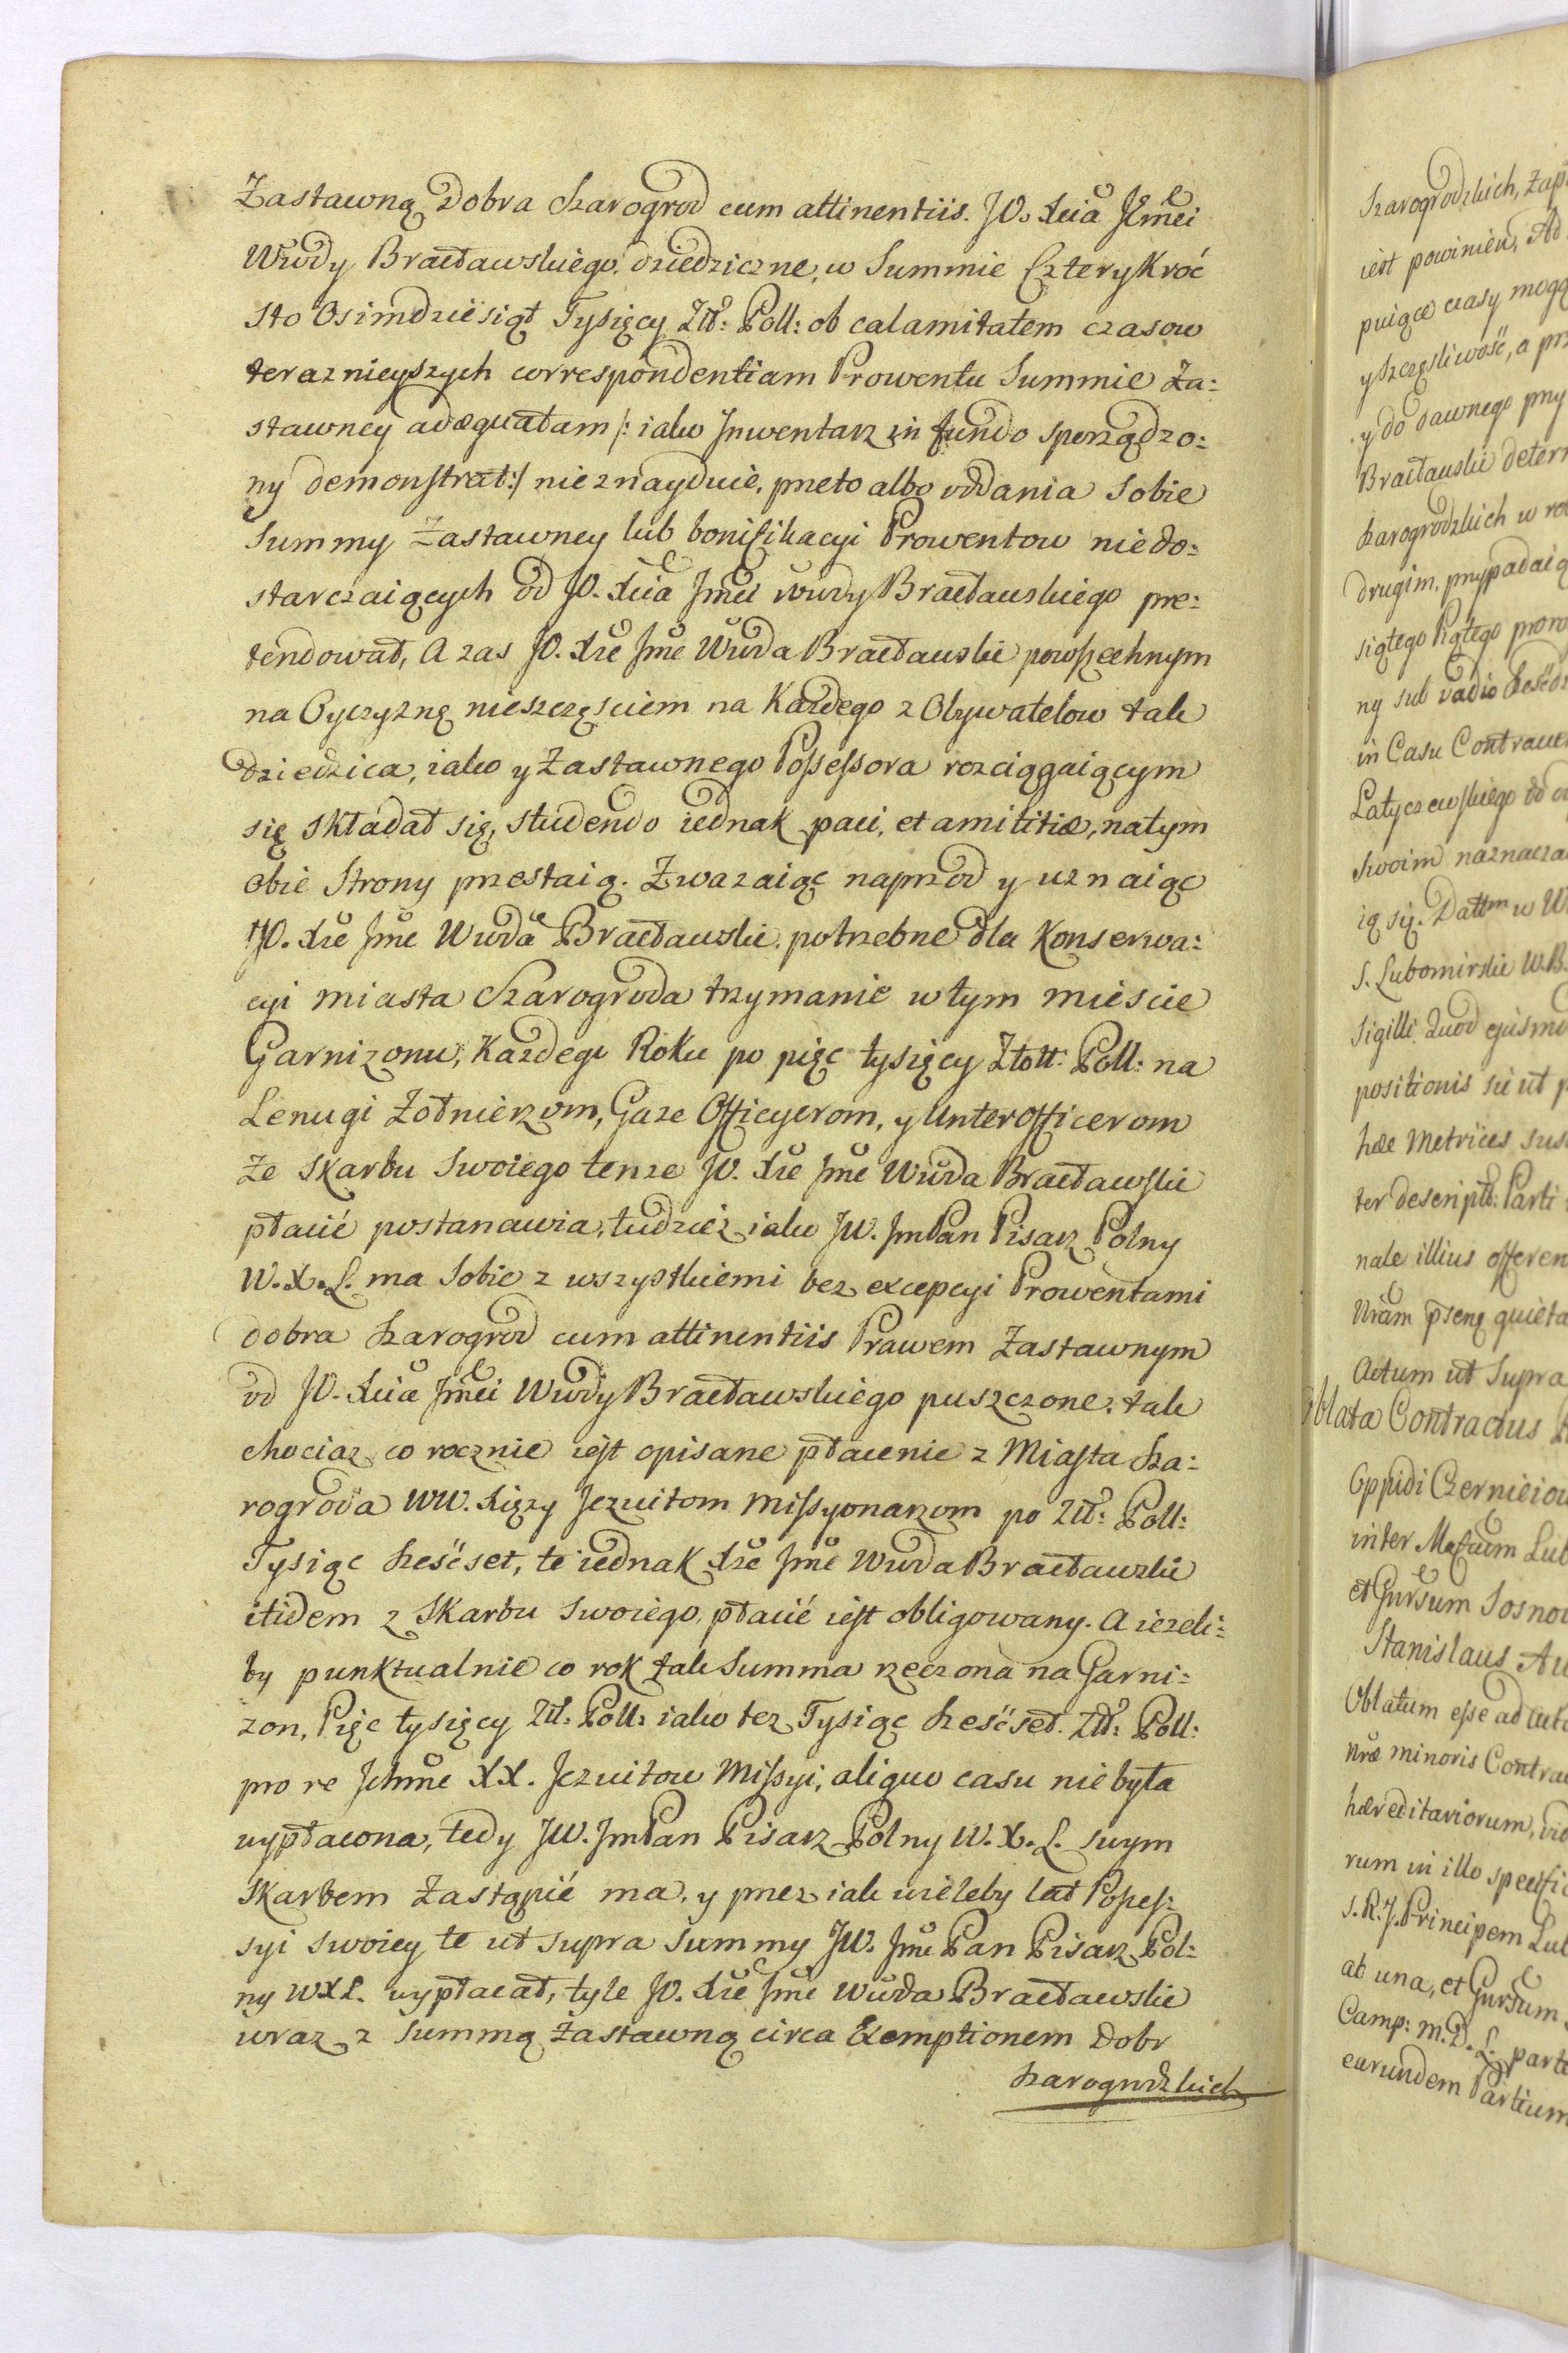 Zastawną Dobra Szarogrod cum attinentiis. JO. Xcia Jmci
Wwdy Bracławskiego, dziedziczne, w Summie Czterykroć
sto Osimdziesiąt Tysięcy Złł: Poll: ob calamitatem czasow
teraznieyszych correspondentiam Prowentu Summie Za:
stawney adæquatam /: iako Jnwentarz in fundo sporządzo:
ny demonstrat:/ nie znayduie, przeto albo oddania Sobie
Summy Zastawney lub bonifikacyi Prowentow niedo:
starczaiących od JO. Xcia Jmci Wwdy Bracławskiego pre:
tendował, A zas JO. Xże Jmć Wwda Bracławskie powszechnym
na Oyczyznę nieszczęsciem na Każdego z Obywatelow tak
dziedzica, iako y Zastawnego Possessora rozciągaiącym
się składał się, studendo iednak paci, et amititiæ, natym
obie Strony przestaią. Zwazaiąc naprzod y uznaiąc
JO. Xże Jmć Wwda Bracławskie potrzebne dla Konserwa:
cyi miasta Szarogroda trzymanie wtym miescie
Garnizonu, Każdego Roku po pięc tysięcy Złott: Poll: na
Lenugi Żołnierzom, Gaze Officyerom, y Unterofficerom
Ze Skarbu Swoiego tenze JO. Xże Jmć Wwda Bracławskie
płacić postanawia, tudziez iako JW. JmPan Pisarz Polny
W. X. L. ma Sobie z wszystkiemi bez excepcyi Prowentami
dobra Szarogrod cum attinentiis Prawem Zastawnym
od JO. Xcia Jmci Wwdy Bracławskiego puszczone, tak
chociaz co rocznie iest opisane płacenie z Miasta Sza:
rogroda WW. Xięzy Jezuitom Missyonarzom po Złł: Poll:
Tysiąc Szesćset, te iednak Xże Jmć Wwda Bracławskie
itidem z Skarbu Swoiego, płacić iest obligowany. A iezeli:
by punktualnie co rok tak Summa rzeczona na Garni:
zon, Pięc tysięcy Złł: Poll: iako tez Tysiąc Szesćset Złł: Poll:
pro re Jchmć XX. Jezuitow Missyi, aliquo casu niebyła
wypłacona, tedy JW. JmPan Pisarz Polny W. X. L. swym
Skarbem Zastąpić ma, y przez iak wieleby lat Posses:
syi swoiey te ut supra Summy JW. Jmć Pan Pisarz Pol:
ny WXL. wypłacał, tyle JO. Xże Jmć Wwda Bracławskie
wraz z Summą Zastawną circa Exemptionem Dobr
Szarogrodzkich
Szarogrodzkich,
iest powinien, Ad
puiące czasy mogą
y Szczęsliwość, a
y do dawnego
Bracławskie
Szarogrodzkich w
drugim, przypadaią
siątego Piątego
ny sub vadio
in Casu
Latyczewskiego
Swoim
ią się. Dattm w
S. Lubomirskie W.B.
Sigilli. Quod
positionis
hæ Metrices
ter descriptt: Parti
nale illius
Nram
Actum ut Supra
Oblata Contractus
Oppidi
inter
et Gnrsum
Stanislaus
Oblatum esse ad
Nræ minoris
hæreditariorum,
rum in illo
S. R. J. Principem
ab una, et Gnrsum
Camp: M. D. L. parte
earundem Partium